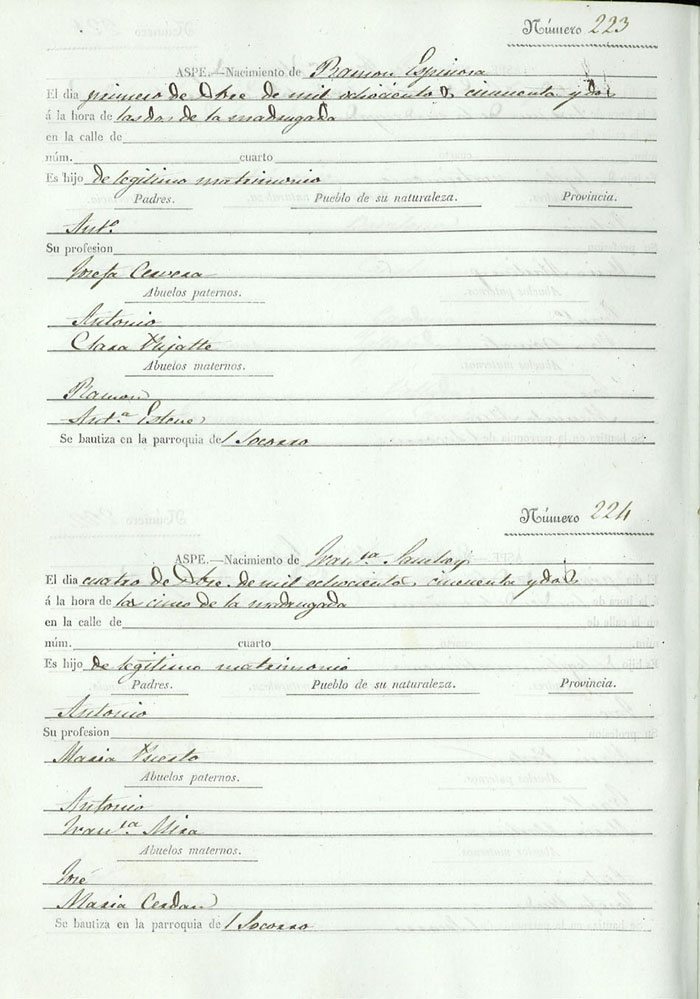 Número 223
ASPE.—Nacimiento de Ramon Espinosa
El dia primero de Dbre de mil ochocientos cincuenta y dos
á la hora de las dos de la madrugada
en la calle de
núm. cuarto
Es hijo de legitimo matrimonio
Padres. Pueblo de su naturaleza. Provincia.
Ant.º
Su profesion
Josefa Cervera
Abuelos paternos.
Antonio
Clara
Abuelos maternos.
Ramon
Ant.ª Esteve
Se bautiza en la parroquia del Socorro
Número 224
ASPE.—Nacimiento de Fran.ca
El dia cuatro de Dbre. de mil ochocientos cincuenta y dos
á la hora de las cinco de la madrugada
en la calle de
núm. cuarto
Es hijo de legitimo matrimonio
Padres. Pueblo de su naturaleza. Provincia.
Antonio
Su profesion
Maria Puerto
Abuelos paternos.
Antonio
Fran.ca Mira
Abuelos maternos.
José
Maria Cerdan
Se bautiza en la parroquia del Socorro